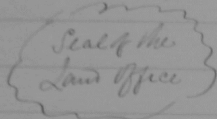 Seal of the
Land Office